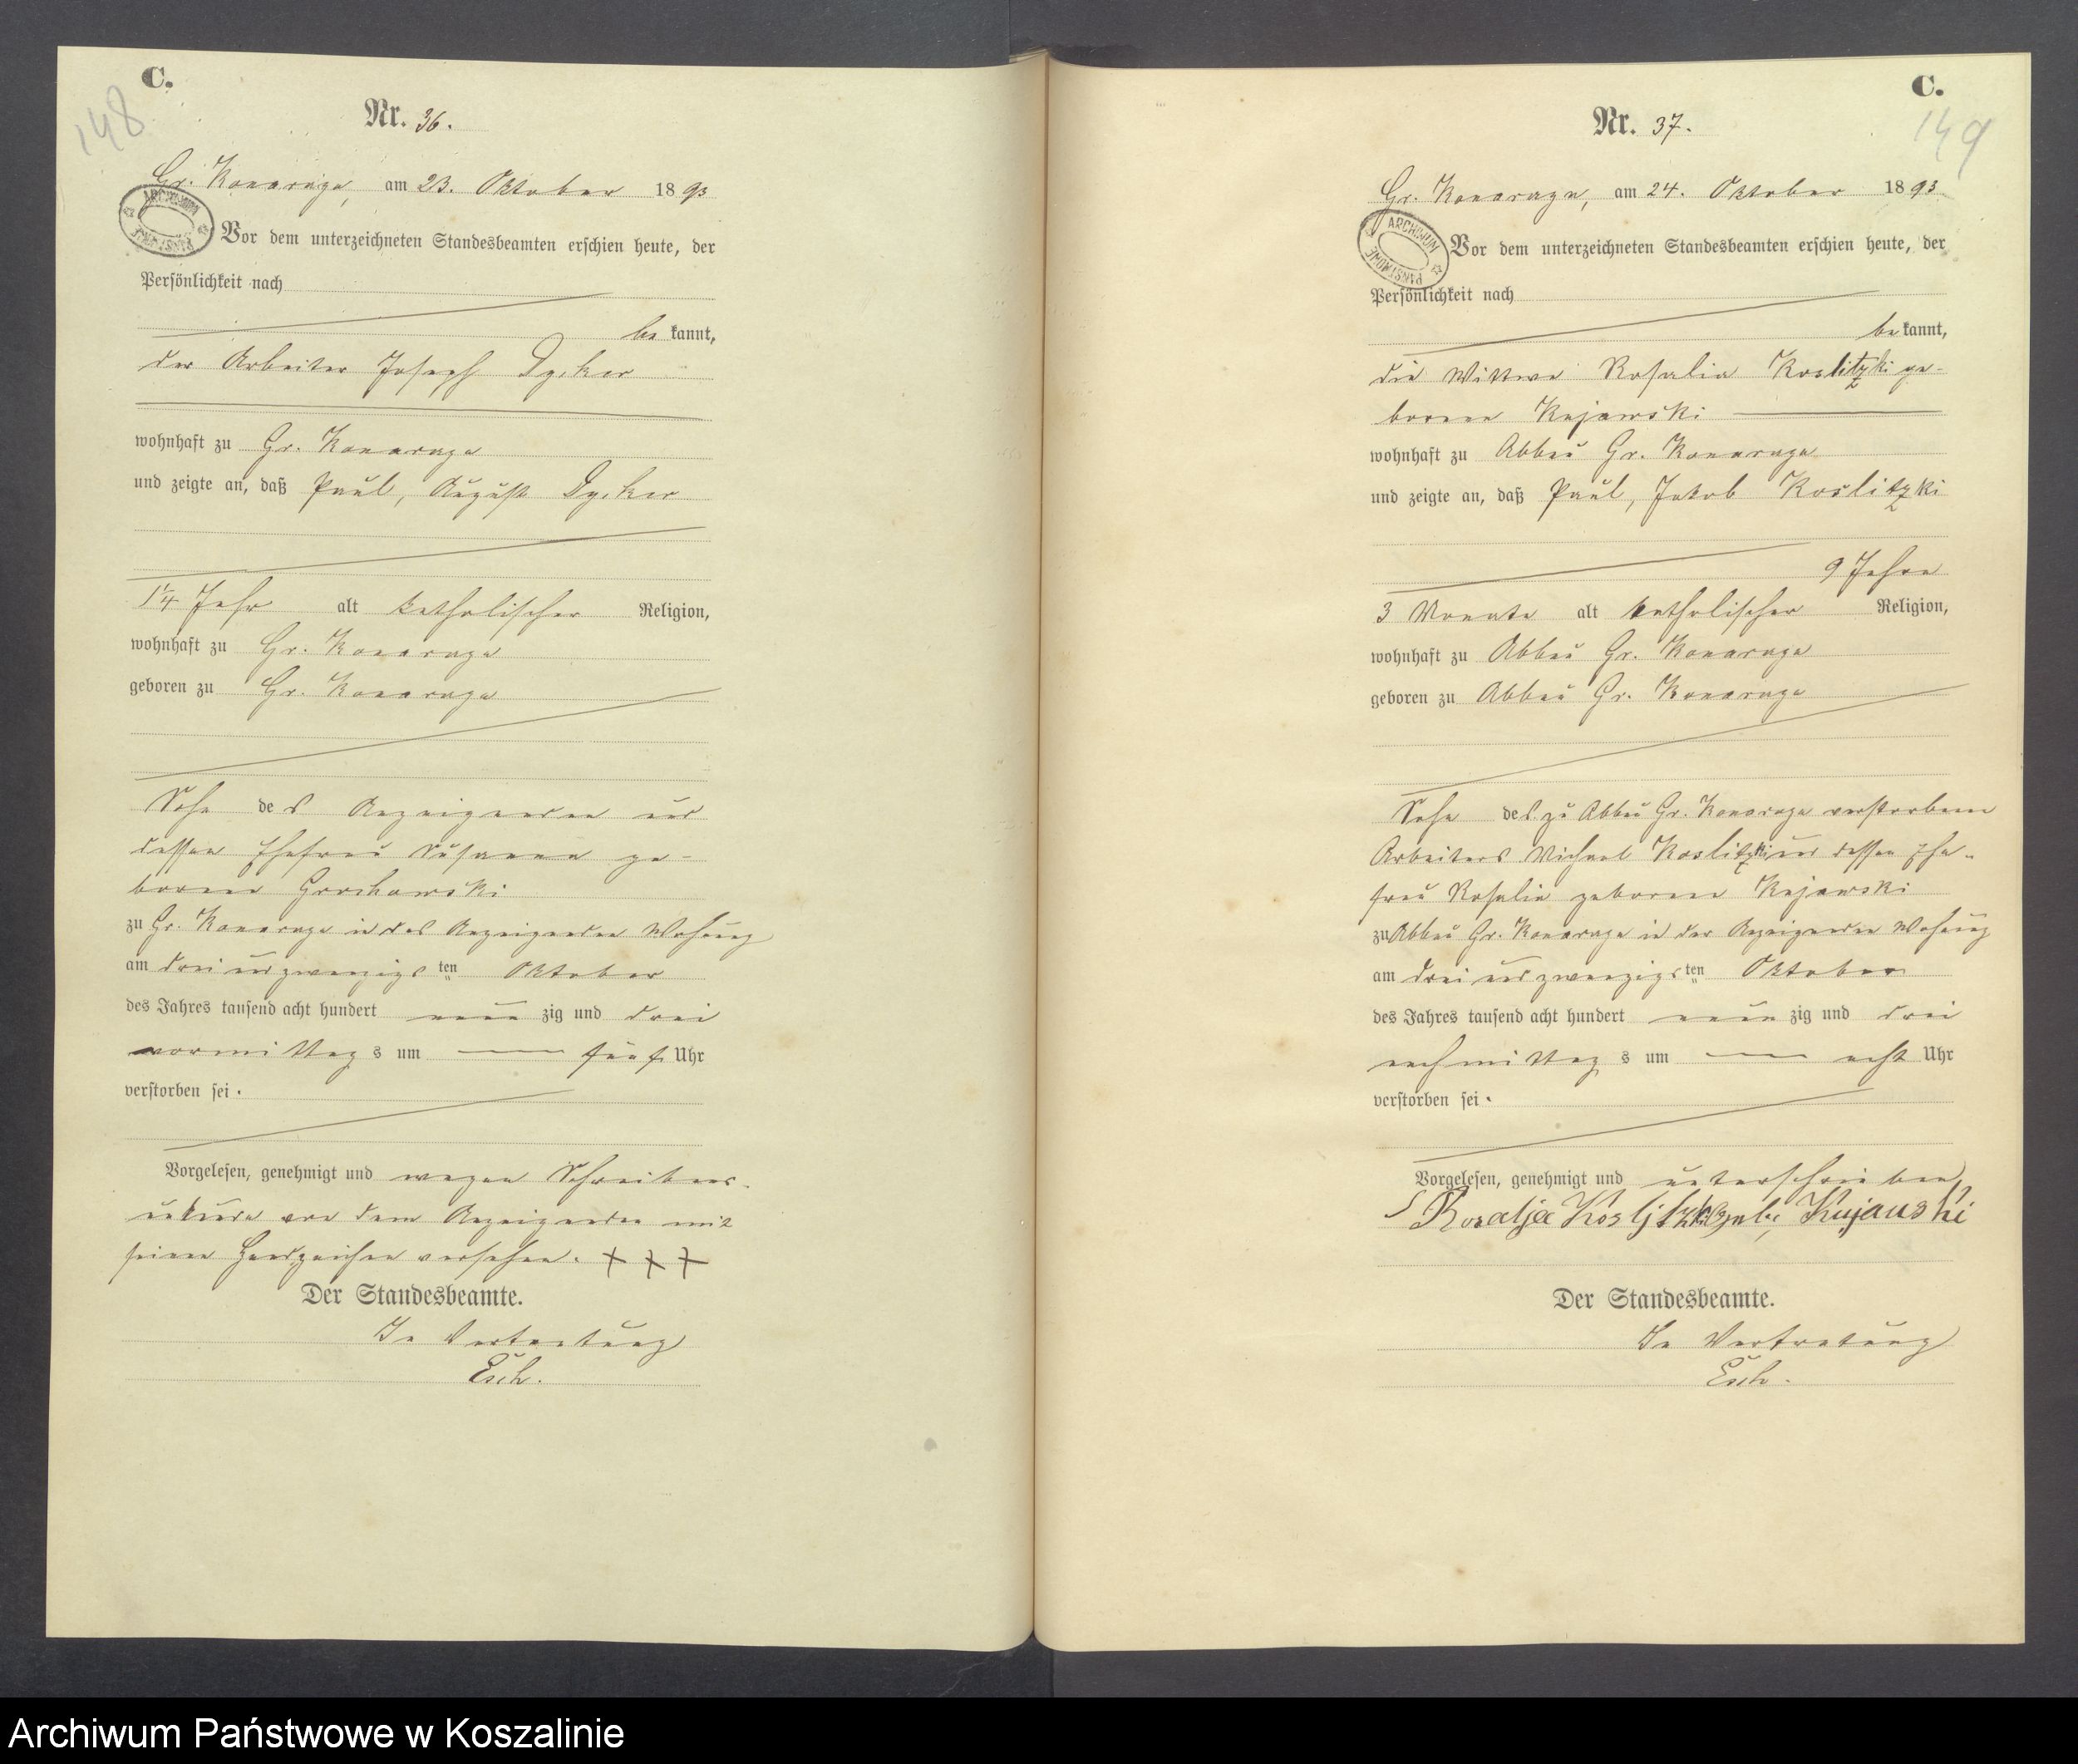 C.
148
Nr. 36.
Gr. Konarzyn, am 23. Oktober 1893
ARCHIWUM PAŃSTWOWE
Vor dem unterzeichneten Standesbeamten erschien heute, der
Persönlichkeit nach
be kannt,
der Arbeiter Joseph
wohnhaft zu Gr. Konarzyn
und zeigte an, daß Paul, August
1¼ Jahr alt katholischer Religion,
wohnhaft zu Gr. Konarzyn
geboren zu Gr. Konarzyn
Sohn des Anzeigenden und
dessen Ehefrau Susanna ge-
borene Grochowski
zu Gr. Konarzyn in des Anzeigenden Wohnung
am drei und zwanzigsten Oktober
des Jahres tausend acht hundert neun zig und drei
vormittags um fünf Uhr
verstorben sei.
Vorgelesen, genehmigt und wegen Schreibens-
unkunde von dem Anzeigenden mit
seinen Handzeichen versehen. + + +
Der Standesbeamte.
In Vertretung
Esch.
C.
149
Nr. 37.
Gr. Konarzyn, am 24. Oktober 1893
ARCHIWUM PAŃSTWOWE
Vor dem unterzeichneten Standesbeamten erschien heute, der
Persönlichkeit nach
be kannt,
die Wittwe Rosalia Koslitzki ge-
borene Kujawski
wohnhaft zu Abbau Gr. Konarzyn
und zeigte an, daß Paul, Jakob Koslitzki
9 Jahre
3 Monate alt katholischer Religion,
wohnhaft zu Abbau Gr. Konarzyn
geboren zu Abbau Gr. Konarzyn
Sohn des zu Abbau Gr. Konarzyn verstorbenen
Arbeiters Michael Koslitzki und dessen Ehe-
frau Rosalia geborene Kujawski
zu Abbau Gr. Konarzyn in der Anzeigenden Wohnung
am drei und zwanzigsten Oktober
des Jahres tausend acht hundert neun zig und drei
nachmittags um acht Uhr
verstorben sei.
Vorgelesen, genehmigt und unterschrieben
Rosalja Kosljtzki geb. Kujauski
Der Standesbeamte.
In Vertretung
Esch.
Archiwum Państwowe w Koszalinie